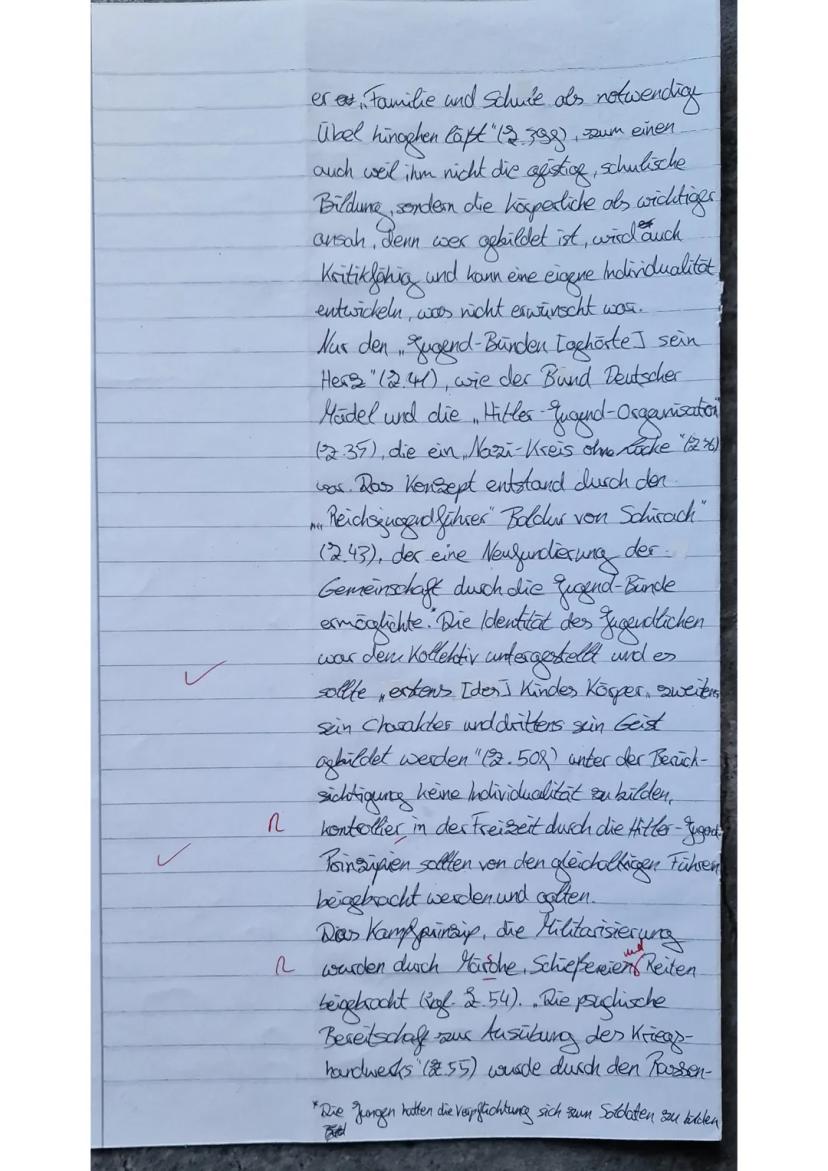 er „Familie und Schule als notwendig
Übel hingehen läßt" (Z. 39f), zum einen
auch weil ihm nicht die geistige, schulische
Bildung, sondern die körperliche als wichtiger
ansah, denn wer gebildet ist, wird auch
Kritikfähig und kann eine eigene Individualität
entwickeln, was nicht erwünscht war.
Nur den „Jugend-Bünden [gehörte] sein
Herz" (Z. 41), wie der Bund Deutscher
Mädel und die „Hitler-Jugend-Organisation"
(Z. 35), die ein „Nazi-Kreis ohne Lücke" (Z. 36)
war. Das Konzept entstand durch den
„Reichsjugendführer" Baldur von Schirach"
(Z. 43), der eine Neufundierung der
Gemeinschaft durch die Jugend-Bünde
ermöglichte.* Die Identität des Jugendlichen
war dem Kollektiv untergestellt und es
sollte „erstens [des] Kindes Körper, zweitens
sein Charakter und drittens sein Geist
gebildet werden" (Z. 50f) unter der Berück-
sichtigung keine Individualität zu bilden,
R kontrollier in der Freizeit durch die Hitler-Jugend.
Prinzipien sollten von den gleichaltrigen Führen
beigebracht werden und galten.
Das Kampfprinzip, die Militarisierung
und
R wurden durch Märsche, Schießereien Reiten
beigebracht (vgl. Z. 54). „Die psychische
Bereitschaft zur Ausübung des Kriegs-
handwerks" (Z. 55) wurde durch den Rassen-
*Die Jungen hatten die Verpflichtung sich zum Soldaten zu bilden